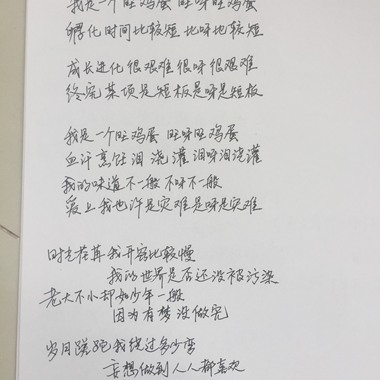 我是一个旺鸡蛋 旺呀旺鸡蛋
孵化时间比较短 比呀比较短
成长进化很艰难 很呀很艰难
终究某项是短板是呀是短板
我是一个旺鸡蛋 旺呀旺鸡蛋
血汗烹饪泪浇灌 泪呀泪浇灌
我的味道不一般 不呀不一般
爱上我也许是灾难是呀是灾难
时光荏苒我开窍比较慢
我的世界是否还没被污染
老大不小却如少年一般
因为有梦没做完
岁月蹉跎我绕过多少弯
妄想做到人人都喜欢